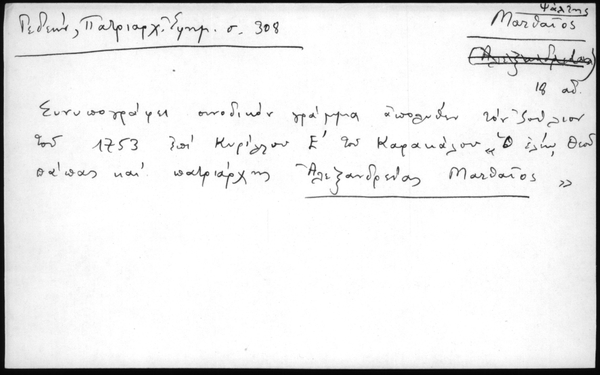 Γεδεών, Πατριαρχ. Εφημ. σ. 308
Ψάλτης
Ματθαῖος
(Ἀλεξανδρείας)
18 αἰ.
Συνυπογράφει συνοδικὸν γράμμα ἀπολυθὲν τὸν Ἰούλιον
τοῦ 1753 ἐπὶ Κυρίλλου Ε' τοῦ Καρακάλου „ Ὁ ἐλέῳ Θεοῦ
πάπας καὶ πατριάρχης Ἀλεξανδρείας Ματθαῖος »